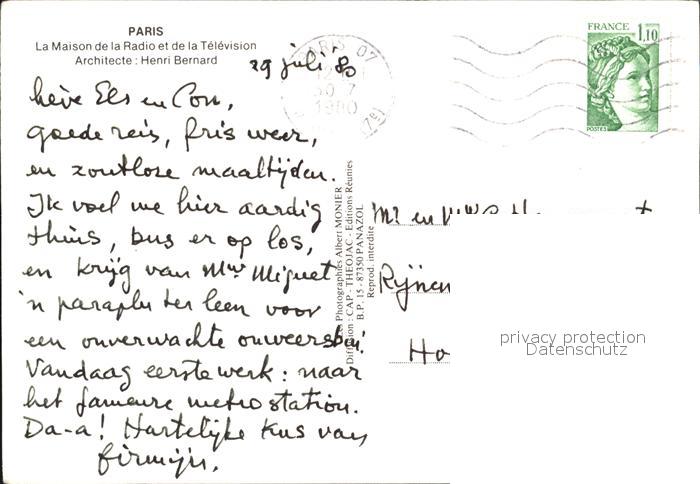 PARIS
La Maison de la Radio et de la Télévision
Architecte : Henri Bernard
29 juli 80
PARIS 07
30-7
1980
FRANCE
1,10
POSTES
lieve Els en Con,
goede reis, fris weer,
en zoutloze maaltijden.
Ik voel me hier aardig
thuis, bus er op los,
en krijg van Mw Miguet
'n paraplu ter leen voor
een onverwachte onweersbui!
Vandaag eerste werk : naar
het fameuze metrostation.
Da-a! Hartelijke kus van
Firmijn.
Photographies Albert MONIER
Diffusion : CAP - THEOJAC - Editions Réunies
B.P. 15 - 87350 PANAZOL
Reprod. interdite
Mr en
Rijnen
Ho
privacy protection
Datenschutz